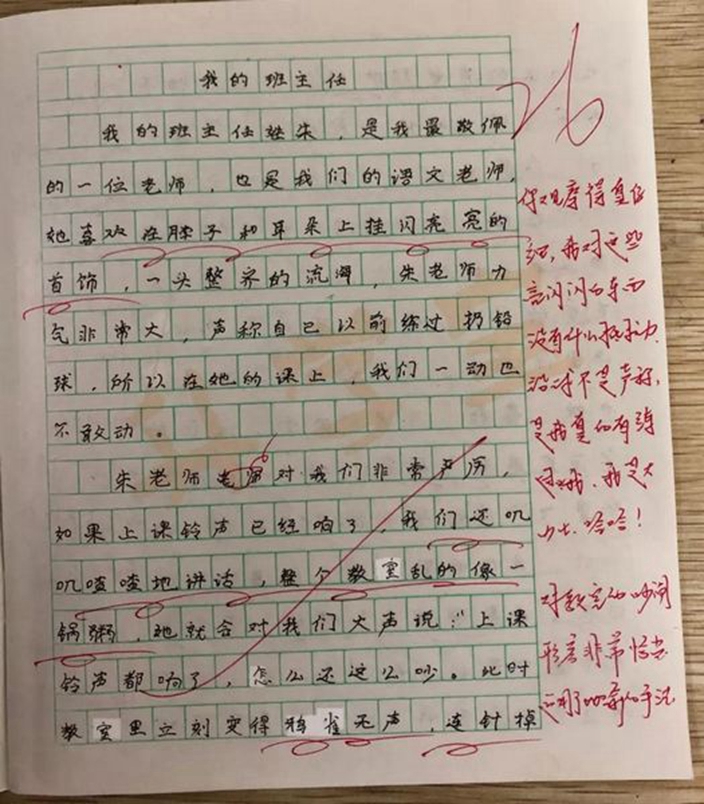 我的班主任
26
我的班主任姓朱，是我最敬佩
的一位老师，也是我们的语文老师，
她喜欢在脖子和耳朵上挂闪亮亮的
首饰，一头整齐的流海，朱老师力
气非常大，声称自已以前练过扔铅
球，所以在她的课上，我们一动也
不敢动。
朱老师老师对我们非常严厉，
如果上课铃声已经响了，我们还叽
叽喳喳地讲话，整个教室乱的像一
锅粥，她就会对我们大声说：“上课
铃声都响了，怎么还这么吵。此时
教室里立刻变得鸦雀无声，连针掉
你观察得真仔
我对这些
闪闪的东西
没有什么抵抗力
不是声称，
是我真的有练
我是大
力士，哈哈！
对教室的吵闹
形容非常恰当
运用了比喻的手法